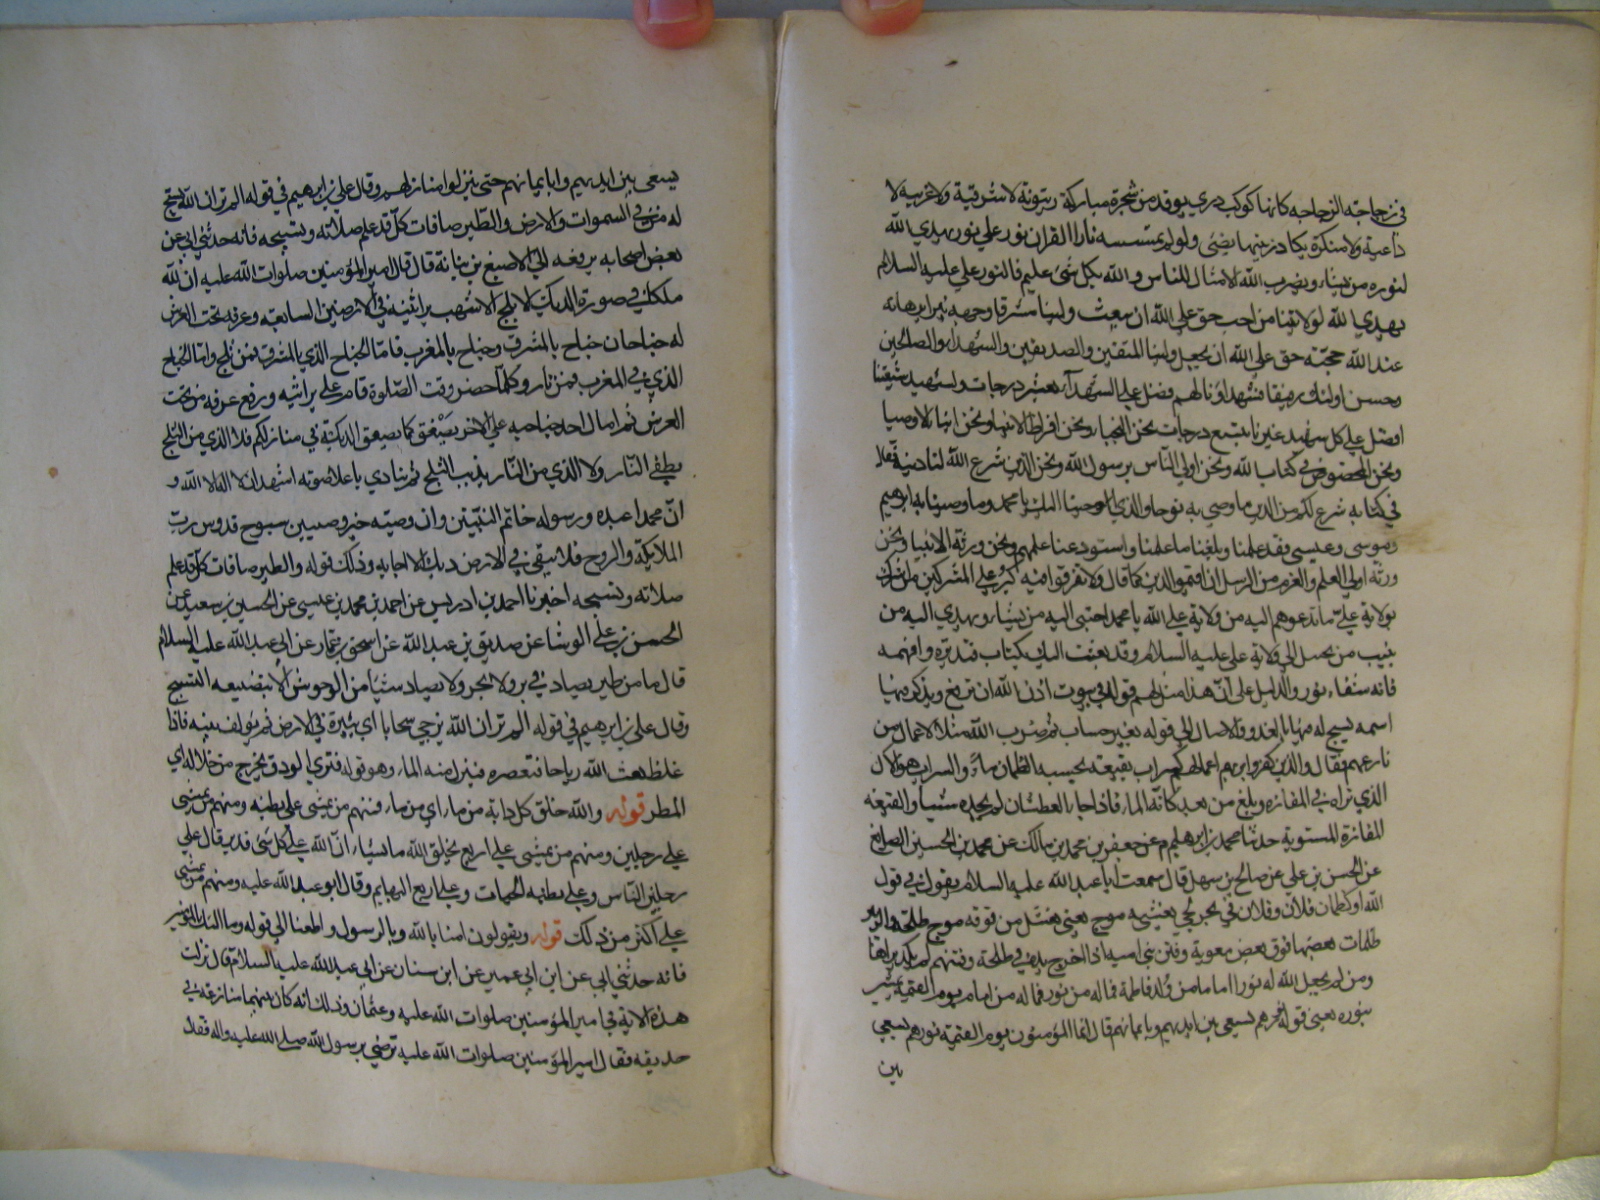 في زجاجة الزجاجه كانها كوكب دري يوقد من شجرة مباركة زيتونة لا شرقية ولا غربيه لا
داعية ولا منكرة يكاد زيتها يضيئ ولو لم تمسسه نارا القران نور علي نور يهدي الله
لنوره من يشاء ويضرب الله الامثال للناس والله بكل شئ عليم فالنور علي عليه السلام
يهدي الله لولايتنا من احب حق علي الله ان يبعث ولينا مشرقا وجهه نيرا برهانه
عند الله حجته حق علي الله ان يجعل ولينا المتقين والصديقين والشهداء والصالحين
وحسن اولئك رفيقا فشهداؤنا لهم فضل علي الشهداء بعشر درجات ولشهيد شيعتنا
افضل علي كل شهيد غيرنا بتسع درجات نحن النجباء ونحن افراط الانبيا ونحن ابناء الاوصيا
ونحن المخصوصون في كتاب الله ونحن اولي الناس برسول الله ونحن الذين شرع الله لنا دينه فقال
في كتابه شرع لكم من الدين ما وصي به نوحا والذي اوحينا اليك يا محمد وما وصينا به ابرهيم
وموسى وعيسى فقد علمنا وبلغنا ما علمنا واستودعنا علمهم ونحن ورثة الانبيا ونحن
ورثة اولي العلم والعزم من الرسل ان اقيموا الدين كما قال ولا تفرقوا فيه كبر علي المشركين من اشرك
بولاية علي ما تدعوهم اليه من ولاية علي الله يا محمد يجتبي اليه من يشاء ويهدي اليه من
ينيب من يجيبك الي ولاية علي عليه السلام وقد بعثت اليك بكتاب فتدبره وافهمه
فانه شفاء ونور والدليل علي ان هذا مثل لهم قوله في بيوت اذن الله ان ترفع ويذكر فيها
اسمه يسبح له فيها بالغدو والاصال الي قوله بغير حساب ثم ضرب الله مثلا لاعمال من
نازعهم فقال والذين كفروا بربهم اعمالهم كسراب بقيعة يحسبه الظمان ماء والسراب هو الال
الذي تراه في المفازه ويلمع من بعد كانه الماء فاذا جاءه العطشان لم يجده شيئا والقيعه
المفازة المستوية حدثنا محمد بن ابرهيم عن جعفر بن محمد بن مالك عن محمد بن الحسين الصايغ
عن الحسن بن علي عن صالح بن سهل قال سمعت ابا عبد الله عليه السلام يقول في قول
الله او كظلمات فلان وفلان في بحر لجي يغشيه موج يعني نعثل من فوقه موج طلحة والزبير
ظلمات بعضها فوق بعض معوية وفتن بني اميه اذا اخرج يده في ظلمة فتنتهم لم يكد يراها
ومن لم يجعل الله له نورا اماما من ولد فاطمة فما له من نور فما له من امام يوم القيمة يمشي
بنوره يعني قوله نورهم يسعي بين ايديهم وبايمانهم قال انما المؤمنون يوم القيمة نورهم يسعي
بين
يسعى بين ايديهم وبايمانهم حتى ينزلوا منازلهم وقال علي بن ابرهيم في قوله الم تر ان الله يسبح
له من في السموات والارض والطير صافات كل قد علم صلاته وتسبيحه فانه حدثني ابي عن
بعض اصحابه يرفعه الي الاصبغ بن نباتة قال قال امير المؤمنين صلوات الله عليه ان لله
ملكا في صورة الديك الابلج الاشهب براثينه في الارضين السابعه وعرفه تحت العرش
له جناحان جناح بالمشرق وجناح بالمغرب فاما الجناح الذي بالمشرق فمن ثلج واما الجناح
الذي في المغرب فمن نار وكلما حضر وقت الصلوة قام علي براثينه ورفع عرفه من تحت
العرش ثم امال احد جناحيه علي الاخر يصفق كما يصفق الديكة في منازلكم فلا الذي من الثلج
يطفئ النار ولا الذي من النار يذيب الثلج ثم ينادي باعلا صوته اشهد ان لا اله الا الله و
ان محمدا عبده ورسوله خاتم النبيين وان وصيه خير وصيين سبوح قدوس رب
الملائكة والروح فلا يبقى في الارض ديك الا اجابه وذلك قوله والطير صافات كل قد علم
صلاته وتسبيحه اخبرنا احمد بن ادريس عن احمد بن محمد بن عيسى عن الحسين بن سعيد عن
الحسن بن علي الوشا عن صديق بن عبد الله عن اسحق بن عمار عن ابي عبد الله عليه السلام
قال ما من طير يصاد في بر ولا بحر ولا يصاد شيئا من الوحوش الا بتضييعه التسبيح
وقال علي بن ابرهيم في قوله الم تر ان الله يزجي سحابا اي يثيره في الارض ثم يولف بينه فاذا
غلظ بعث الله رياحا فتعصره فينزل منه الماء وهو قوله فتري الودق يخرج من خلاله اي
المطر قوله والله خلق كل دابة من ماء اي من ماء فمنهم من يمشي على بطنه ومنهم من يمشي
علي رجلين ومنهم من يمشي علي اربع يخلق الله ما يشاء ان الله علي كل شئ قدير قال علي
رجلين الناس وعلي بطنه الحيات وعلي اربع البهايم وقال ابو عبد الله عليه ومنهم من يمشي
علي اكثر من ذلك قوله ويقولون امنا بالله وبالرسول واطعنا الي قوله وما اولئك بالمؤمنين
فانه حدثني ابي عن ابن ابي عمير عن ابن سنان عن ابي عبد الله عليه السلام قال نزلت
هذه الاية في امير المؤمنين صلوات الله عليه وعثمان وذلك انه كان بينهما منازعة في
حديقه فقال امير المؤمنين صلوات الله عليه ترضي برسول الله صلي الله عليه واله فقال